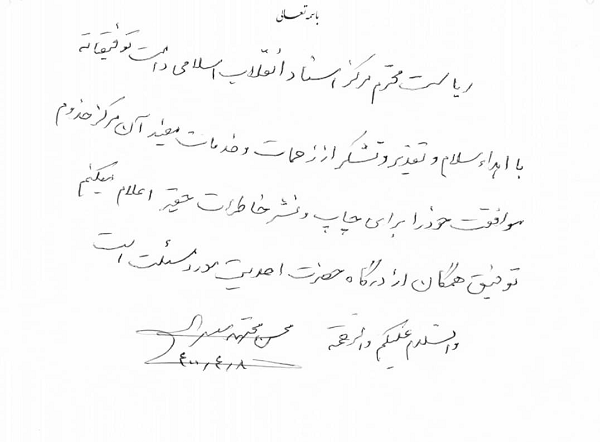 باسمه تعالی
ریاست محترم مرکز اسناد انقلاب اسلامی دامت توفیقاته
با اهداء سلام و تقدیر و تشکر از زحمات و خدمات مفید آن مرکز خدوم
موافقت خود را برای چاپ و نشر خاطرات حقیر اعلام میکنم
توفیق همگان از درگاه حضرت احدیت مورد مسئلت است
والسلام علیکم والرحمة
محسن مجتهد
۴۰۰,۴,۸